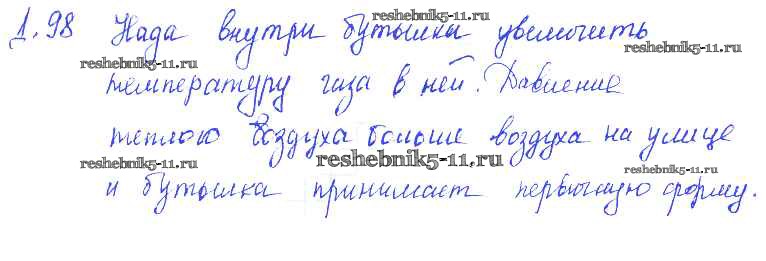 1.98 Нада внутри бутылки увеличить
температуру газа в ней. Давление
теплого воздуха больше воздуха на улице
и бутылка принимает первичную форму.
reshebnik5-11.ru
reshebnik5-11.ru
reshebnik5-11.ru
reshebnik5-11.ru
reshebnik5-11.ru
reshebnik5-11.ru